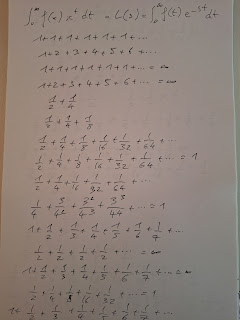 ∫₀^∞ f(x) x^t dt = L(s) = ∫₀^∞ f(t) e^-st dt
1+1+1+1+1+1+1+...
1+2+3+4+5+6+...
1+1+1+1+1+1+1+... = ∞
1+2+3+4+5+6+... = ∞
1/2 + 1/4
1/2 + 1/4 + 1/8
1/2 + 1/4 + 1/8 + 1/16 + 1/32 + 1/64 + ...
1/2 + 1/4 + 1/8 + 1/16 + 1/32 + 1/64 + ... = 1
1/2 + 1/4 + 1/16 + 1/32 + 1/64 + ...
1/4 + 3/4² + 3²/4³ + 3³/4⁴ + ... = 1
1 + 1/2 + 1/3 + 1/4 + 1/5 + 1/6 + 1/7 + ...
1/2 + 1/2 + 1/2 + 1/2 + ... = ∞
1 + 1/2 + 1/3 + 1/4 + 1/5 + 1/6 + 1/7 + ... = ∞
1/2 + 1/4 + 1/8 + 1/16 + 1/32 + ... = 1
1 + 1/2 + 1/3 + 1/4 + 1/5 + 1/6 + ...